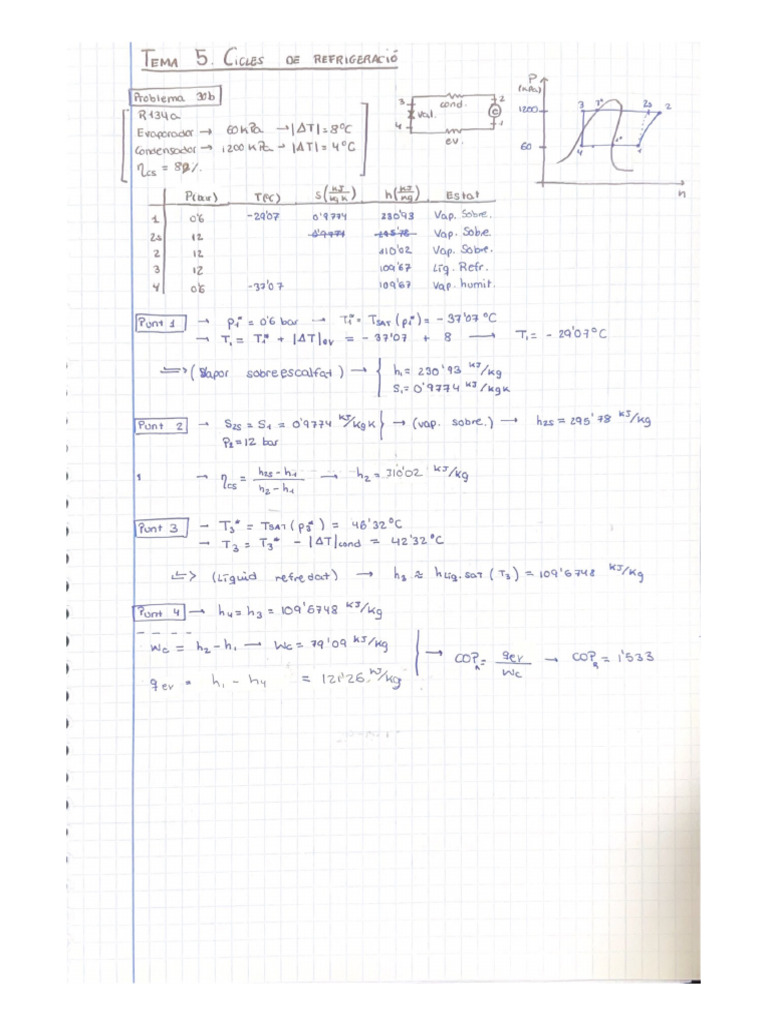 TEMA 5. CICLES DE REFRIGERACIÓ
Problema 30b
R134a
Evaporador → 60 kPa → |ΔT| = 8°C
Condensador → 1200 KPa → |ΔT| = 4°C
ηcs = 82%.
3 cond. 2
val. C
4 ev. 1
P (kPa)
1200
60
3 3* 2s 2
4 1* 1
h
P(bar) T(°C) s(KJ/kgK) h(KJ/kg) Estat
1 0'6 -29'07 0'9774 230'93 Vap. Sobre.
2s 12 0'9774 295'78 Vap. Sobre.
2 12 310'02 Vap. Sobre.
3 12 109'67 Líq. Refr.
4 0'6 -37'07 109'67 Vap. humit.
Punt 1 → p1* = 0'6 bar → T1* = TSAT (p1*) = -37'07 °C
→ T1 = T1* + |ΔT|ev = -37'07 + 8 → T1 = -29'07°C
⇒ (Vapor sobreescalfat) → h1 = 230'93 KJ/kg
S1 = 0'9774 KJ/kgK
Punt 2 → S2s = S1 = 0'9774 KJ/kgK → (vap. sobre.) → h2s = 295'78 KJ/kg
P2 = 12 bar
→ ηcs = h2s - h1 / h2 - h1 → h2 = 310'02 KJ/kg
Punt 3 → T3* = TSAT (p3*) = 46'32°C
→ T3 = T3* - |ΔT|cond = 42'32°C
⇒ (líquid refredat) → h3 ≈ hLíq.SAT (T3) = 109'6748 KJ/kg
Punt 4 → h4 = h3 = 109'6748 KJ/kg
Wc = h2 - h1 → Wc = 79'09 KJ/kg
qev = h1 - h4 = 121'26 KJ/kg
→ COPR = qev / Wc → COPR = 1'533